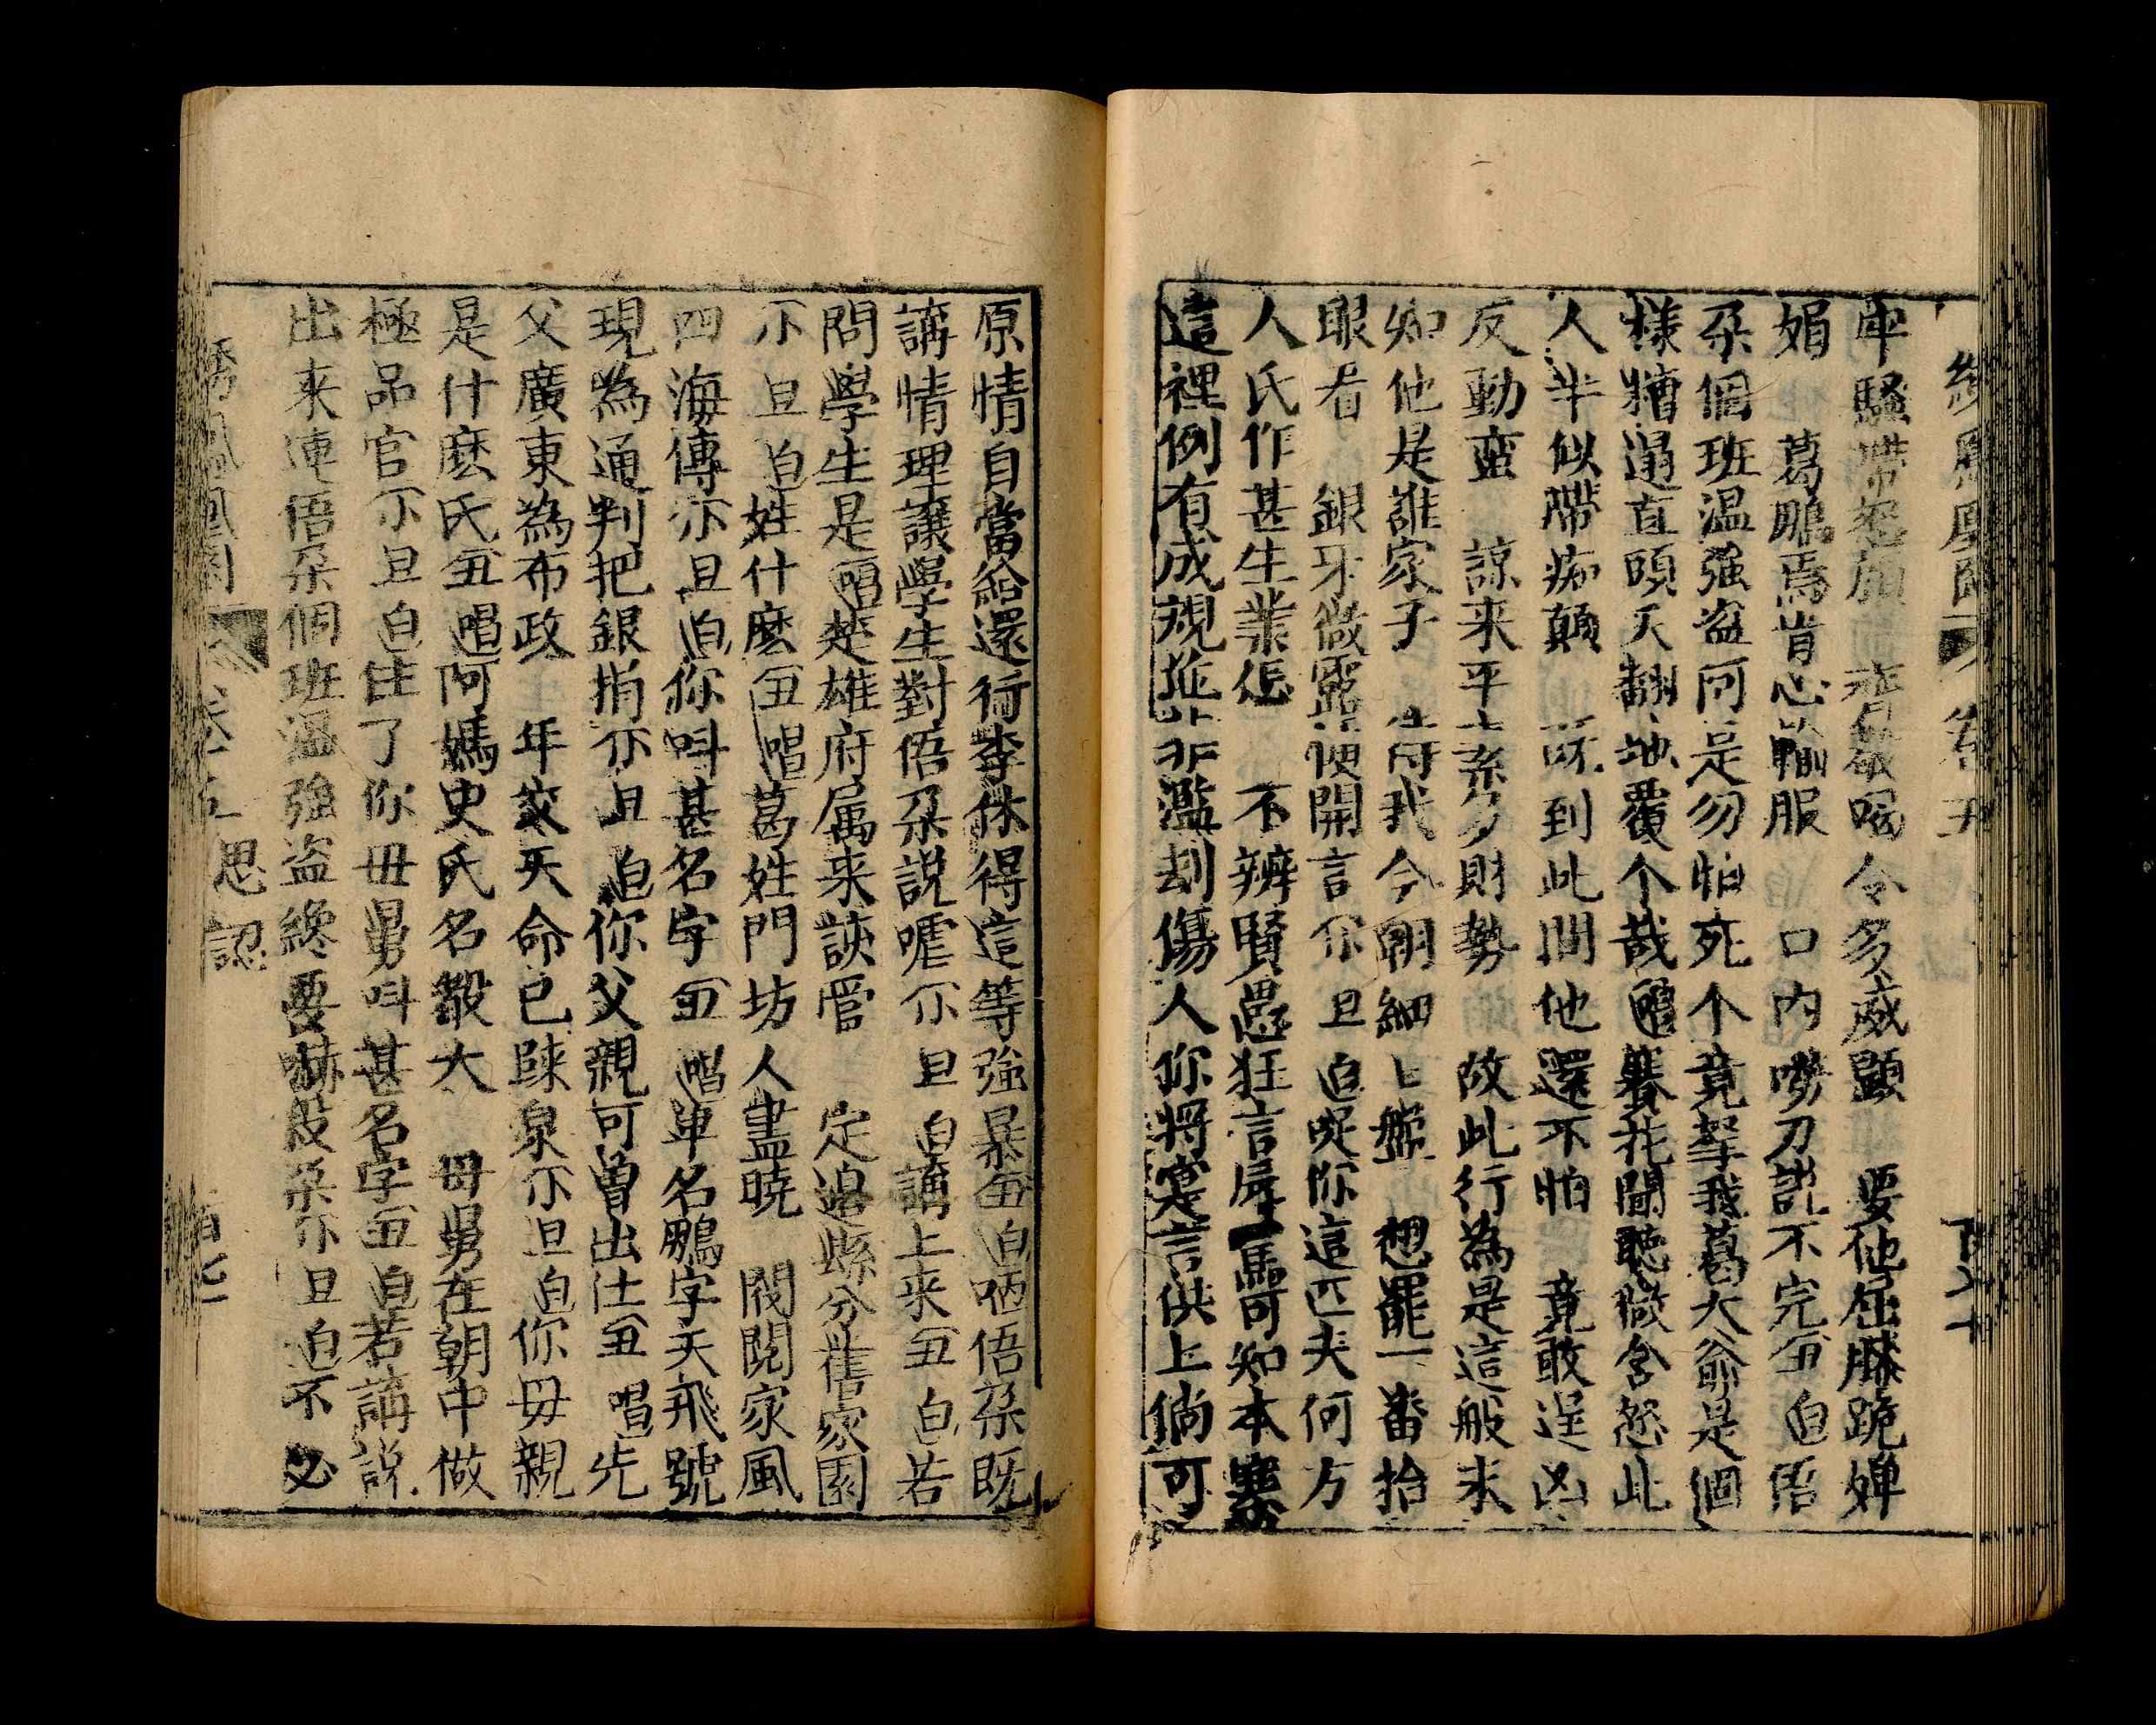 繡鳳凰圖 卷五
牢騷帶怒顏 齊聲喝令多威顯 要他屈膝跪嬋
娟 葛鵬焉肯心輸服 口內嘮刀說不完丑白唔
朵個班温强盗阿是勿怕死个竟拏我葛大爺是個
樣糟遢直頭天翻地覆个哉唱賽花聞聽微含怒此
人半似帶痴顛 旣到此間他還不怕 竟敢逞凶
反動蛮 諒来平素多財勢 故此行為是這般未
知他是誰家子 待我今朝細〻盤 想罷一番抬
眼看 銀牙微露便開言尔旦白哫你這匹夫何方
人氏作甚生業怎 不辨賢愚狂言辱罵可知本寨
這裡例有成規並非濫刼傷人你將寔言供上倘可
原情自當給還行李休得這等強暴丑白哂唔朵既
講情理讓學生對唔朵説嘘尔旦白講上来丑白若
問學生是唱楚雄府属来該管 定邉縣分舊家園
尔旦白姓什麽丑唱葛姓門坊人盡曉 閥閱家風
四海傳尔旦白你呌甚名字丑唱單名鵬字天飛號
現為通判把銀捐尔旦白你父親可曾出仕丑唱先
父廣東為布政 年災天命已歸泉尔旦白你毋親
是什麽氏丑唱阿媽史氏名聲大 毋舅在朝中做
極品官尔旦白住了你毋舅呌甚名字丑白若講説
出来連唔朵個班温強盗纔要嚇殺朵尔旦白不必
繡鳳凰圖 卷五 思認